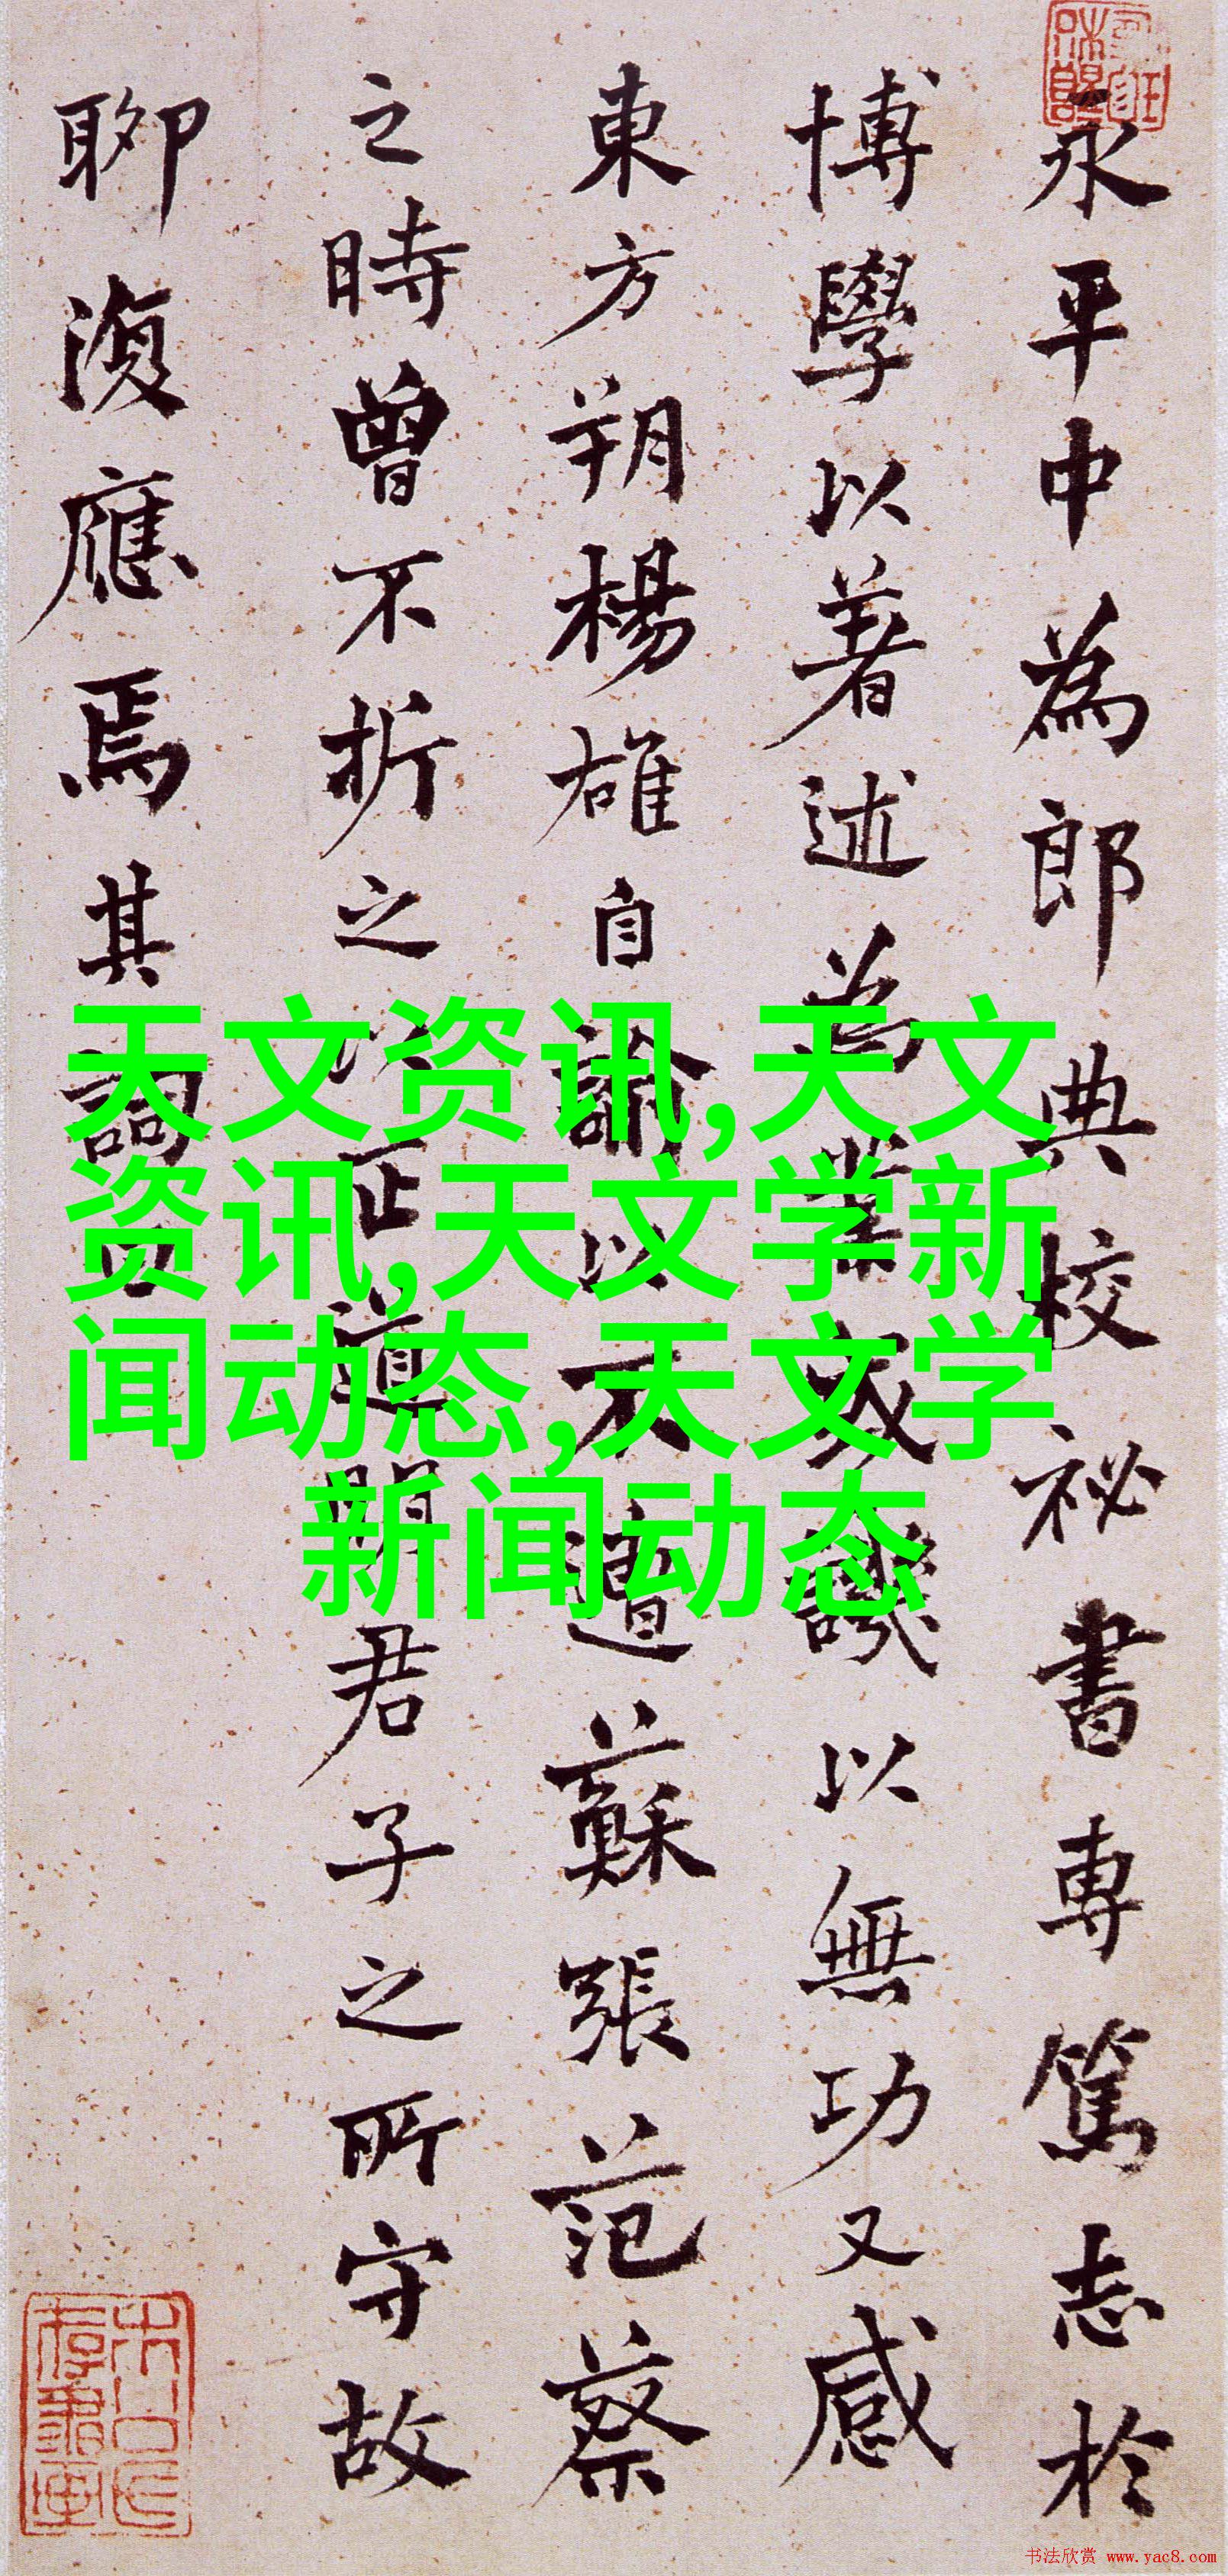 永平中為郎典校祕書專篤志於
博學以著述為業或譏以無功又感
東方朔楊雄自諭以不遭蘇張范蔡
之時曾不折之以正道明君子之所守故
聊復應焉其詞曰
天文资讯,天文
资讯,天文学新
闻动态,天文学
新闻动态
书法欣赏 www.yac8.com